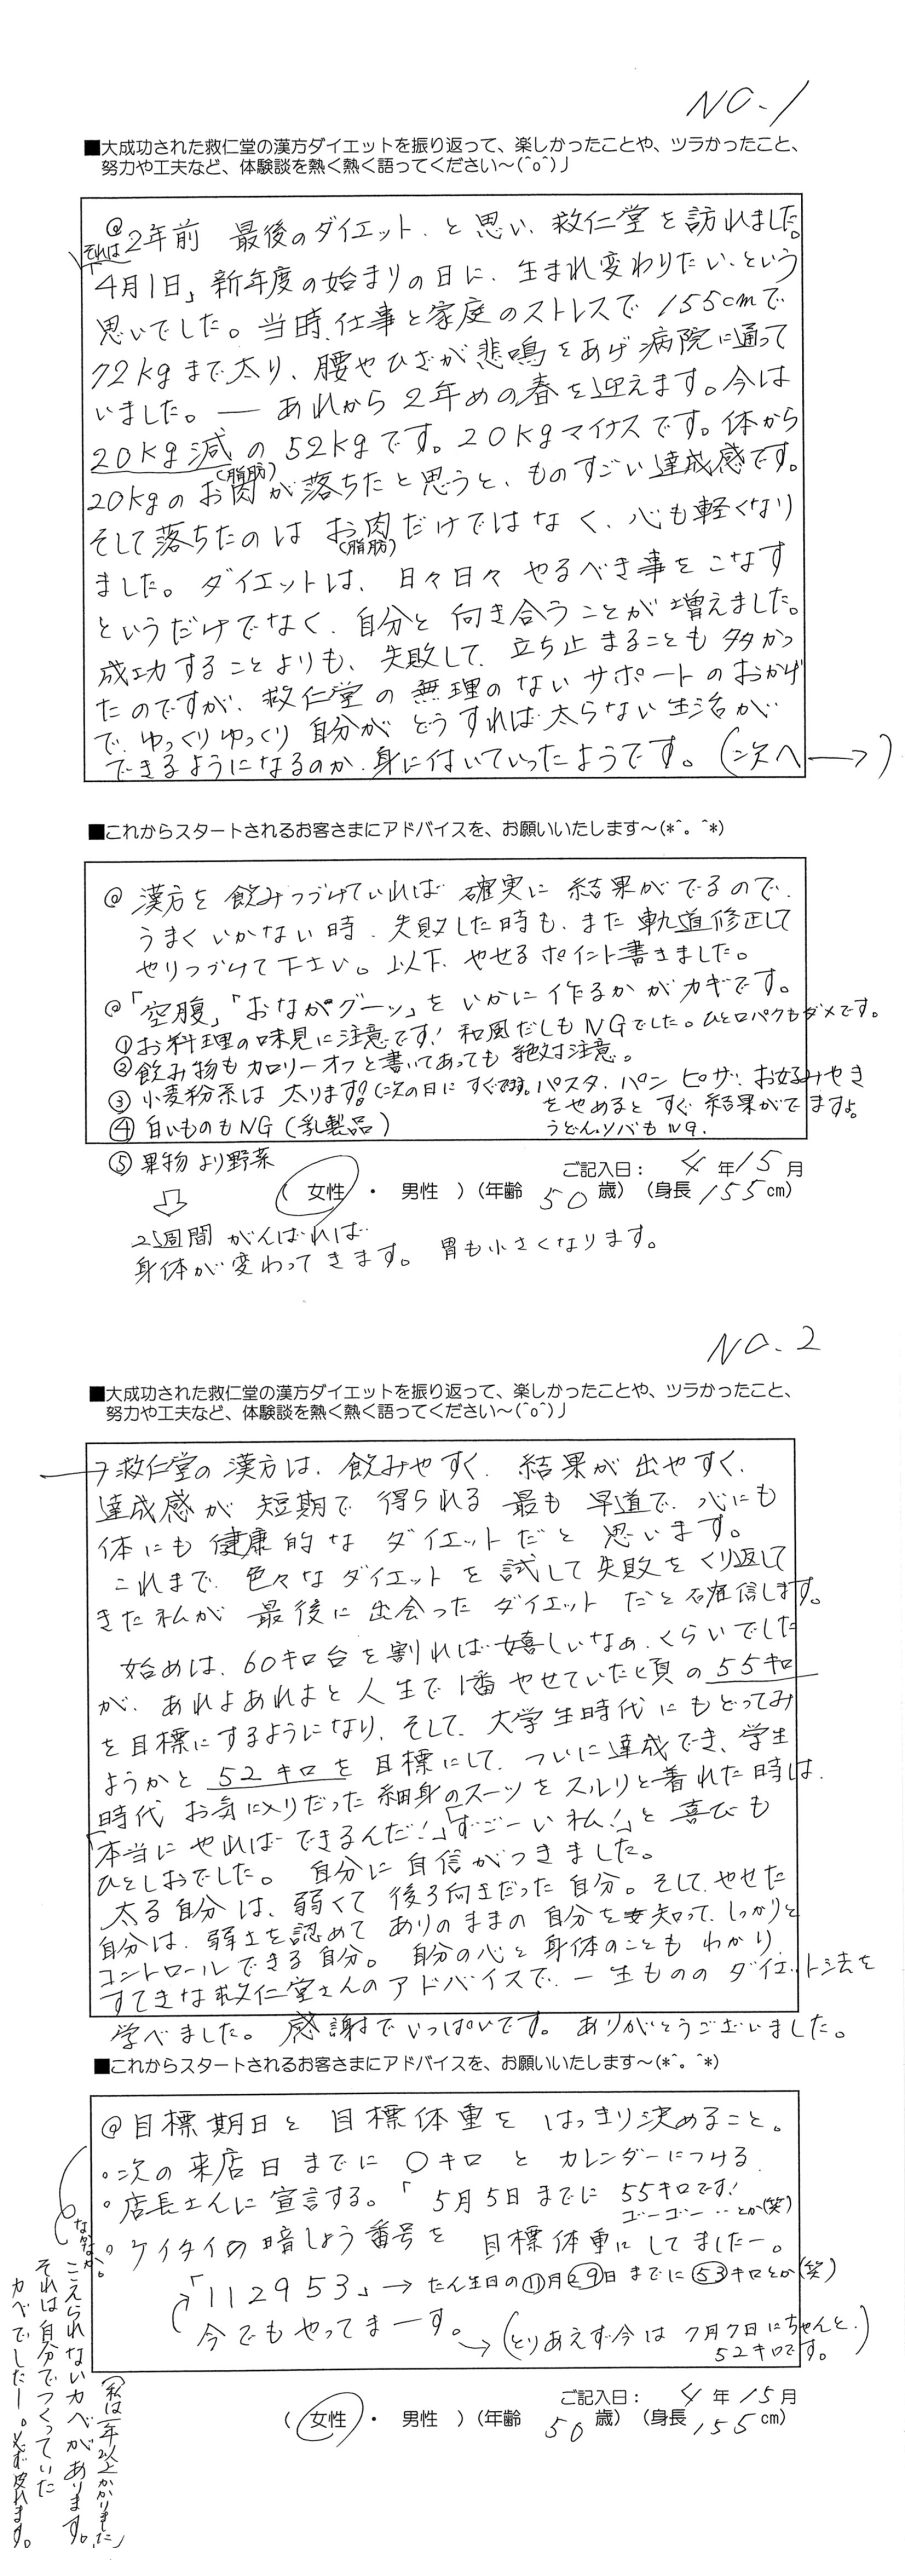 NO.1
■大成功された救仁堂の漢方ダイエットを振り返って、楽しかったことや、ツラかったこと、
努力や工夫など、体験談を熱く熱く語ってください〜(^o^)」
@ 2年前 最後のダイエット、と思い、救仁堂を訪れました。
それは
4月1日、新年度の始まりの日に、生まれ変わりたい、という
思いでした。当時、仕事と家庭のストレスで 155cmで
72kgまで太り、腰やひざが悲鳴をあげ病院に通って
いました。― あれから2年めの春を迎えます。今は
20kg減の52kgです。20kgマイナスです。体から
20kgのお肉(脂肪)が落ちたと思うと、ものすごい達成感です。
そして落ちたのは お肉(脂肪)だけではなく、心も軽くなり
ました。ダイエットは、日々日々 やるべき事をこなす
というだけでなく、自分と向き合うことが増えました。
成功することよりも、失敗して、立ち止まることも多かっ
たのですが、救仁堂の無理のないサポートのおかげ
で、ゆっくりゆっくり 自分が どうすれば太らない生活が
できるようになるのか、身に付いていったようです。(次へ→)
■これからスタートされるお客さまにアドバイスを、お願いいたします〜(*^。^*)
@ 漢方を飲みつづけていれば 確実に結果がでるので、
うまくいかない時、失敗した時も、また軌道修正して
やりつづけて下さい。以下、やせるポイント書きました。
@「空腹」「おなかグーッ」をいかに作るかがカギです。
①お料理の味見に注意です! 和風だしもNGでした。ひと口パクもダメです。
②飲み物もカロリーオフと書いてあっても絶対注意。
③小麦粉系は太ります!!(次の日にすぐでます。パスタ、パン ピザ、お好みやき
をやめると すぐ結果がでますよ
④白いものもNG(乳製品)
うどん、ソバもNG.
⑤果物より野菜
ご記入日: 4年15月
( 女性 ・ 男性 )(年齢 50歳)(身長155cm)
⇩
2週間 がんばれば
身体が変わってきます。胃も小さくなります。
NO.2
■大成功された救仁堂の漢方ダイエットを振り返って、楽しかったことや、ツラかったこと、
努力や工夫など、体験談を熱く熱く語ってください〜(^o^)」
→救仁堂の漢方は、飲みやすく、結果が出やすく、
達成感が短期で得られる 最も早道で、心にも
体にも健康的なダイエットだと思います。
これまで、色々なダイエットを試して失敗をくり返して
きた私が 最後に出会ったダイエットだと確信します。
始めは、60キロ台を割れば嬉しいなぁ、くらいでした
が、あれよあれよと人生で1番やせていた頃の55キロ
を目標にするようになり、そして、大学生時代にもどってみ
ようかと 52キロを目標にして、ついに達成でき、学生
時代 お気に入りだった細身のスーツをスルリと着れた時は、
「本当にやればできるんだ!」「すごーい私!」と喜びも
ひとしおでした。 自分に自信がつきました。
太る自分は、弱くて後ろ向きだった自分。そして、やせた
自分は、弱さを認めて ありのままの自分を知って、しっかりと
コントロールできる自分。自分の心と身体のことも わかり、
すてきな救仁堂さんのアドバイスで、一生もののダイエット法を
学べました。感謝でいっぱいです。ありがとうございました。
■これからスタートされるお客さまにアドバイスを、お願いいたします〜(*^。^*)
@目標期日と 目標体重をはっきり決めること。
・次の来店日までに ○キロ とカレンダーにつける
・店長さんに宣言する。「5月5日までに 55キロです!
ゴーゴー‥とか(笑)
・ケイタイの暗しょう番号を 目標体重にしてましたー。
「112953」→ たん生日の⑪月㉙日までに53キロとか(笑)
今でもやってまーす。
→(とりあえず今は 7月7日にちゃんと、
52キロです。)
なかなか、こえられないカベがあります。(私は一年以上かかりました)
それは自分でつくっていた
カベでしたー。必ず破れます。
ご記入日: 4年15月
( 女性 ・ 男性 )(年齢 50歳)(身長155cm)